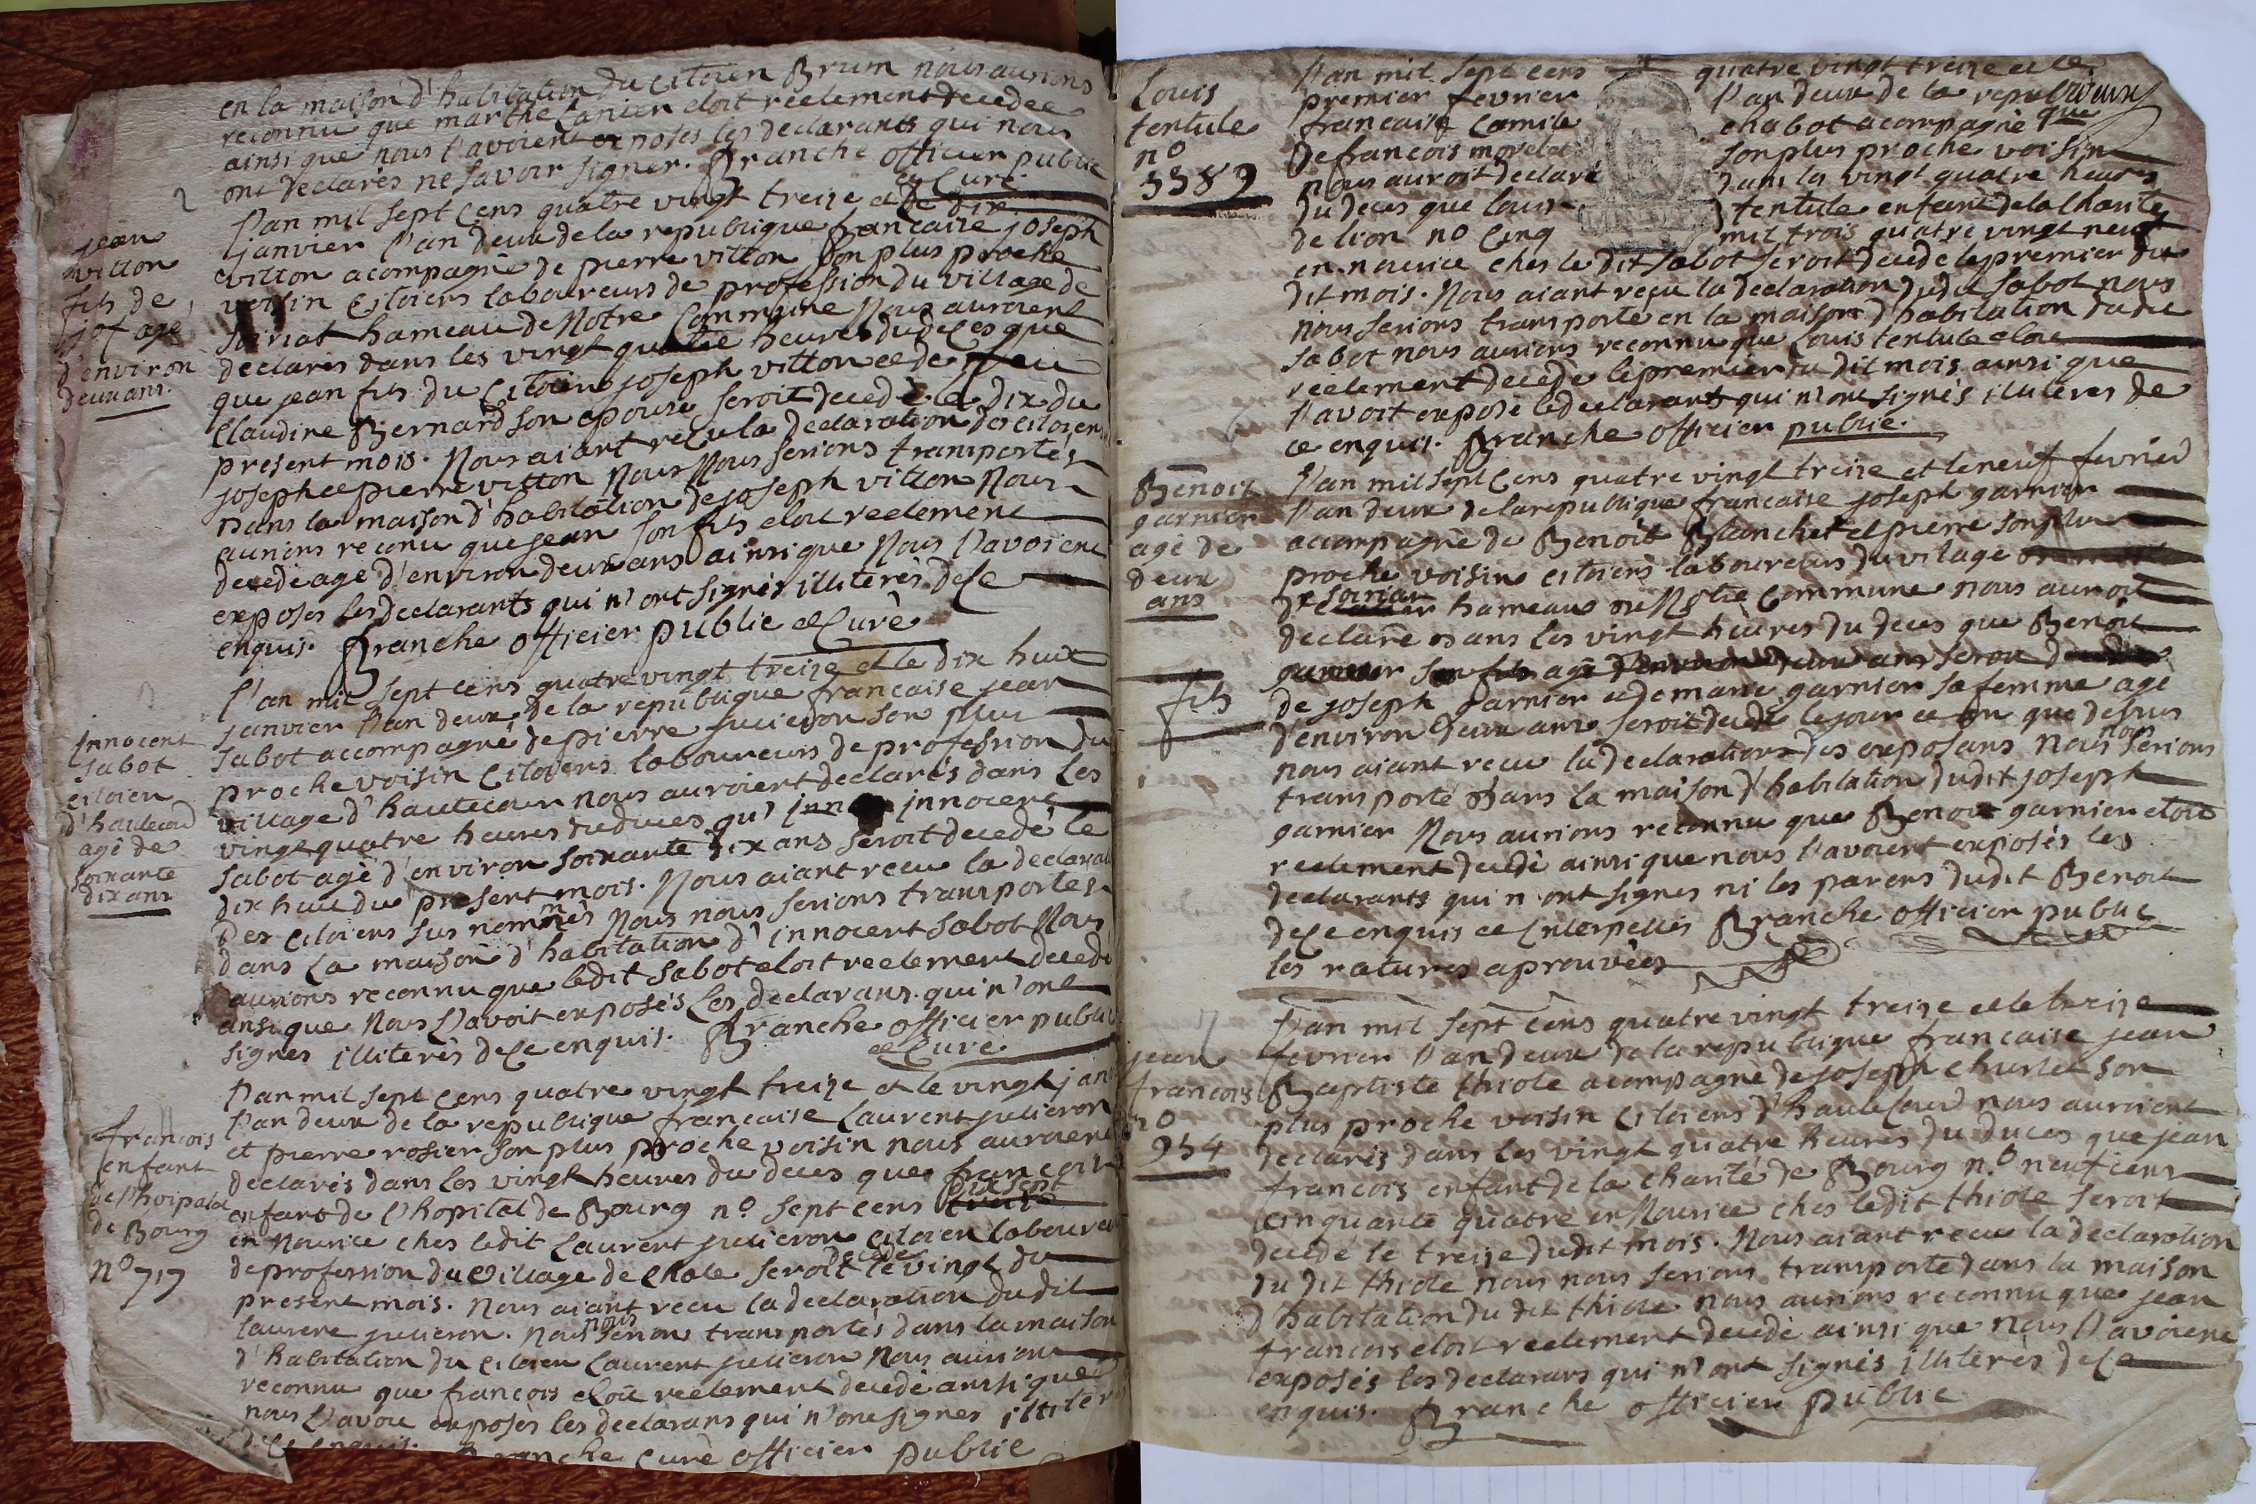 en la maison d'habitation du citoien Brum nous aurions
reconnu que marthe Lanier etoit réelement decedée
ainsi que nous l'avoient exposés les declarants qui nous
ont declarés ne savoir signer. Branche officier public
et Curé.
jean
vitton
fils de
jos. agé
d'environ
deux ans.
L'an mil sept cens quatre vingt treize et le dix
janvier l'an deux de la republique francaise joseph
vitton acompagné de pierre vitton son plus proche
voisin citoiens laboureurs de profession du village de
Soiriat hameau de Notre Commune Nous auroient
declarés dans les vingt quatre heures du deces que
que jean fils du Citoien joseph vitton et de
Claudine Bernard son epouse seroit decedé le dix du
present mois. Nous aiant reçu la declaration des citoiens
joseph et pierre vitton Nous Nous serions transportés
Dans la maison d'habitation de joseph vitton Nous
aurions reconu que jean son fils etoit reelement
decedé agé d'environ deux ans ainsi que Nous l'avoient
exposés les declarants qui n'ont signés illiterés de Ce
enquis. Branche officier public et Curé
innocent
sabot
citoien
d'hautecour
agé de
soixante
dix ans
L'an mil sept cens quatre vingt treize et le dix huit
janvier l'an deux de la republique francaise jean
sabot accompagné de pierre juilleron son plus
proche voisin Citoiens laboureurs de profession du
village d'hautecour nous auroient declarés dans les
vingt quatre heures du deces qu' innocent
sabot agé d'environ soixante dix ans seroit decedé le
dix huit du present mois. Nous aiant recu la declarat
des citoiens sus nommés Nous nous serions transportés
dans la maison d'habitation d'innocent sabot Nous
aurions reconnu que ledit sabot etoit reelement decedé
ansi que Nous l'avoit exposés Les declarans qui n'ont
signés illiterés de Ce enquis. Branche officier public
et Curé.
francois
enfant
de l'hopital
de Bourg
no 717
L'an mil sept cens quatre vingt treize et le vingt jan
l'an deux de la republique francaise Laurent juilleron
et pierre rosier son plus proche voisin nous auroient
declarés dans les vingt heures du deces que francois
enfant de l'hopital de Bourg no. sept cens dix sept
en Nourice ches ledit Laurent juilleron citoien laboureur
de profession du village de Chole seroit decedé le vingt du
present mois. Nous aiant recu la declaration dudit
laurent juilleron. Nous nous serions transportés dans la maison
d'habitation du citoien Laurent juilleron Nous aurions
reconnu que francois etoit reelement decedé ainsi que
nous l'avoit exposés les declarans qui n'ont signés illiter
de Ce enquis. Branche curé officier public
Louis
tentule
no
5389
L'an mil sept cens quatre vingt treize et le
premier fevrier l'an deux de la republique
francaise Camile chabot acompagné
de francois morel son plus proche voisin
nous auroit declaré dans les vingt quatre heures
du deces que louis tentule enfant de la Charité
de lion no Cinq mil trois quatre vingt neuf
en nourice ches le dit sabot seroit decedé le premier du
dit mois. Nous aiant reçu la declaration dudit sabot nous
nous serions transporté en la maison d'habitation dudit
sabot nous aurions reconnu que Louis tentule etoit
reelement decedé le premier du dit mois ainsi que
l'avoit exposé le declarant qui n'ont signés illiterés de
ce enquis. Branche officier public.
Benoit
garnier
agé de
deux
ans
fils
L'an mil sept Cens quatre vingt treize et le neuf fevrier
l'an deux de la republique francaise joseph garnier
accompagné de Benoit Blanchet et pierre son plus
proche voisin citoiens laboureurs du vilage
de soiriat hameau de Notre Commune nous auroit
declaré dans les vingt heures du deces que Benoit
garnier son fils agé d'environ deux ans seroit decedé
de joseph garnier et de marie garnier sa femme agé
d'environ deux ans seroit decedé le jour et an que dessus
nous aiant recu la declaration des exposans Nous nous serions
transporté dans la maison d'habitation dudit joseph
garnier Nous aurions reconnu que Benoit garnier etoit
reelement decedé ainsi que nous l'avoient exposés les
declarants qui n'ont signés ni les parens dudit Benoit
de Ce enquis et interpellés Branche officier public
les ratures aprouvées
jean
francois
no
954
L'an mil sept cens quatre vingt treize et le treize
fevrier l'an deux de la republique francaise jean
Baptiste thiole acompagné de joseph churlet son
plus proche voisin Citoiens d'hautecour nous auroient
declarés dans les vingt quatre heures du duces que jean
francois enfant de la charité de Bourg n.o neuf cens
cinquante quatre en Nourice ches ledit thiole seroit
decedé le treize dudit mois. Nous aiant recu la declaration
du dit thiole nous nous serions transporté dans la maison
d'habitation du dit thiole nous aurions reconnu que jean
francois etoit reelement decedé ainsi que nous l'avoient
exposés les declarans qui n'ont signés illiterés de Ce
enquis. Branche officier public